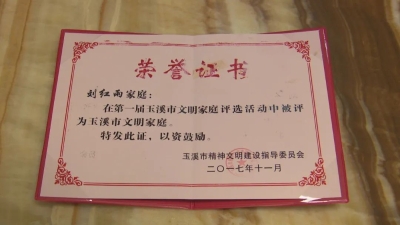 荣誉证书
刘红雨家庭：
在第一届玉溪市文明家庭评选活动中被评
为玉溪市文明家庭。
特发此证，以资鼓励。
玉溪市精神文明建设指导委员会
二〇一七年十一月